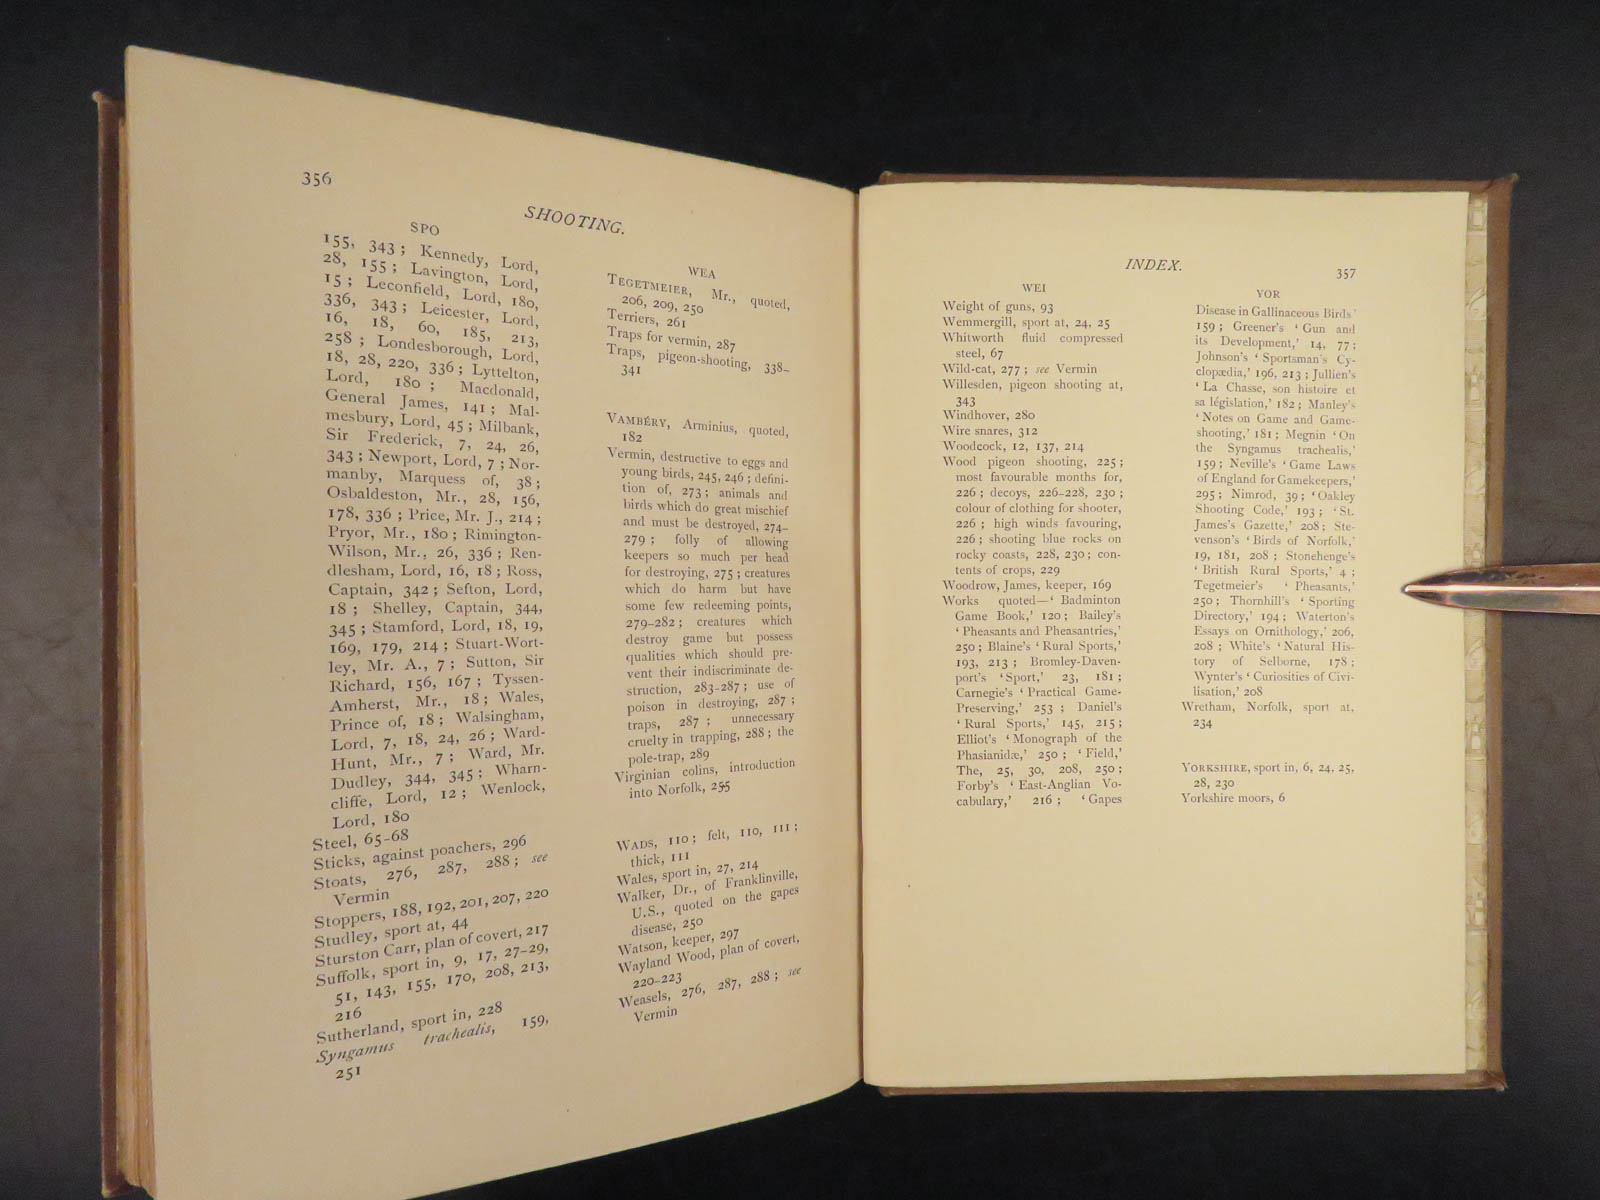 356
SHOOTING.
SPO
155, 343; Kennedy, Lord,
28, 155; Lavington, Lord,
15; Leconfield, Lord, 180,
336, 343; Leicester, Lord,
16, 18, 60, 185, 213,
258; Londesborough, Lord,
18, 28, 220, 336; Lyttelton,
Lord, 180; Macdonald,
General James, 141; Mal-
mesbury, Lord, 45; Milbank,
Sir Frederick, 7, 24, 26,
343; Newport, Lord, 7; Nor-
manby, Marquess of, 38;
Osbaldeston, Mr., 28, 156,
178, 336; Price, Mr. J., 214;
Pryor, Mr., 180; Rimington-
Wilson, Mr., 26, 336; Ren-
dlesham, Lord, 16, 18; Ross,
Captain, 342; Sefton, Lord,
18; Shelley, Captain, 344,
345; Stamford, Lord, 18, 19,
169, 179, 214; Stuart-Wort-
ley, Mr. A., 7; Sutton, Sir
Richard, 156, 167; Tyssen-
Amherst, Mr., 18; Wales,
Prince of, 18; Walsingham,
Lord, 7, 18, 24, 26; Ward-
Hunt, Mr., 7; Ward, Mr.
Dudley, 344, 345; Wharn-
cliffe, Lord, 12; Wenlock,
Lord, 180
Steel, 65-68
Sticks, against poachers, 296
Stoats, 276, 287, 288; see
Vermin
Stoppers, 188, 192, 201, 207, 220
Studley, sport at, 44
Sturston Carr, plan of covert, 217
Suffolk, sport in, 9, 17, 27-29,
51, 143, 155, 170, 208, 213,
216
Sutherland, sport in, 228
Syngamus trachealis, 159,
251
WEA
TEGETMEIER, Mr., quoted,
206, 209, 250
Terriers, 261
Traps for vermin, 287
Traps, pigeon-shooting, 338-
341
VAMBÉRY, Arminius, quoted,
182
Vermin, destructive to eggs and
young birds, 245, 246; defini-
tion of, 273; animals and
birds which do great mischief
and must be destroyed, 274-
279; folly of allowing
keepers so much per head
for destroying, 275; creatures
which do harm but have
some few redeeming points,
279-282; creatures which
destroy game but possess
qualities which should pre-
vent their indiscriminate de-
struction, 283-287; use of
poison in destroying, 287;
traps, 287; unnecessary
cruelty in trapping, 288; the
pole-trap, 289
Virginian colins, introduction
into Norfolk, 255
WADS, 110; felt, 110, 111;
thick, 111
Wales, sport in, 27, 214
Walker, Dr., of Franklinville,
U.S., quoted on the gapes
disease, 250
Watson, keeper, 297
Wayland Wood, plan of covert,
220-223
Weasels, 276, 287, 288; see
Vermin
INDEX.
357
WEI
Weight of guns, 93
Wemmergill, sport at, 24, 25
Whitworth fluid compressed
steel, 67
Wild-cat, 277; see Vermin
Willesden, pigeon shooting at,
343
Windhover, 280
Wire snares, 312
Woodcock, 12, 137, 214
Wood pigeon shooting, 225;
most favourable months for,
226; decoys, 226-228, 230;
colour of clothing for shooter,
226; high winds favouring,
226; shooting blue rocks on
rocky coasts, 228, 230; con-
tents of crops, 229
Woodrow, James, keeper, 169
Works quoted—‘Badminton
Game Book,’ 120; Bailey's
‘Pheasants and Pheasantries,’
250; Blaine's ‘Rural Sports,’
193, 213; Bromley-Daven-
port's ‘Sport,’ 23, 181;
Carnegie's ‘Practical Game-
Preserving,’ 253; Daniel's
‘Rural Sports,’ 145, 215;
Elliot's ‘Monograph of the
Phasianidæ,’ 250; ‘Field,’
The, 25, 30, 208, 250;
Forby's ‘East-Anglian Vo-
cabulary,’ 216; ‘Gapes
YOR
Disease in Gallinaceous Birds’
159; Greener's ‘Gun and
its Development,’ 14, 77;
Johnson's ‘Sportsman's Cy-
clopædia,’ 196, 213; Jullien's
‘La Chasse, son histoire et
sa législation,’ 182; Manley's
‘Notes on Game and Game-
shooting,’ 181; Megnin ‘On
the Syngamus trachealis,’
159; Neville's ‘Game Laws
of England for Gamekeepers,’
295; Nimrod, 39; ‘Oakley
Shooting Code,’ 193; ‘St.
James's Gazette,’ 208; Ste-
venson's ‘Birds of Norfolk,’
19, 181, 208; Stonehenge's
‘British Rural Sports,’ 4;
Tegetmeier's ‘Pheasants,’
250; Thornhill's ‘Sporting
Directory,’ 194; Waterton's
Essays on Ornithology,’ 206,
208; White's ‘Natural His-
tory of Selborne, 178;
Wynter's ‘Curiosities of Civi-
lisation,’ 208
Wretham, Norfolk, sport at,
234
YORKSHIRE, sport in, 6, 24, 25,
28, 230
Yorkshire moors, 6